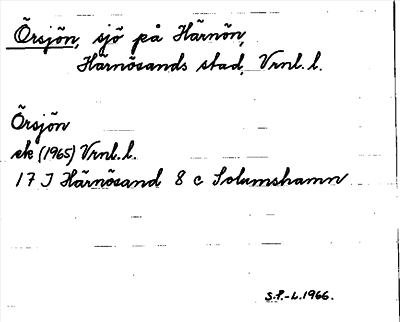 Örsjön, sjö på Härnön,
Härnösands stad, Vrnl. l.
Örsjön
ek (1965) Vrnl. l.
17 J Härnösand 8 c Solumshamn
S.F.-L.1966.